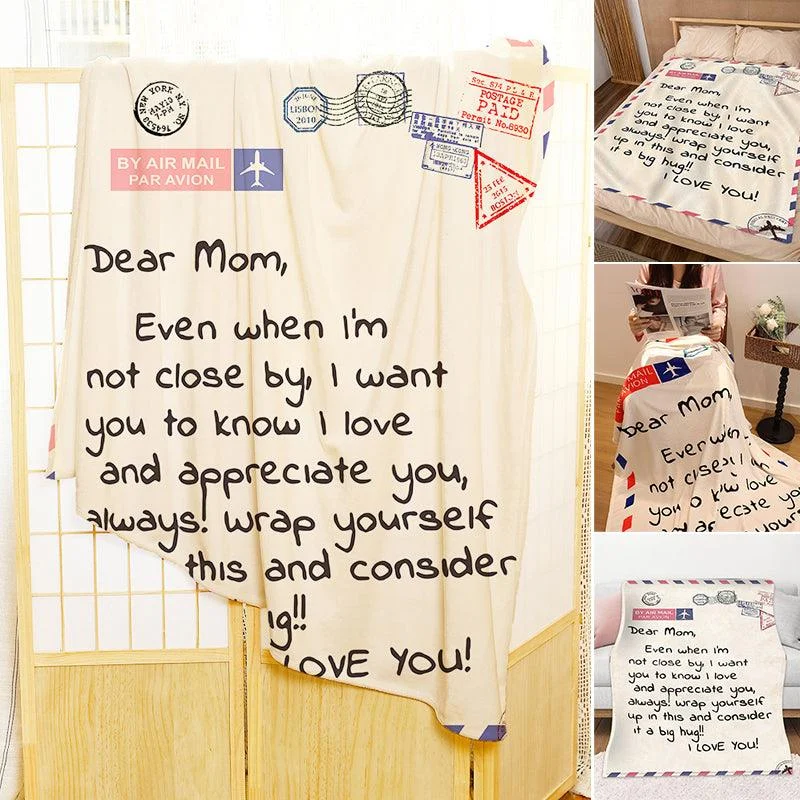 NEW YORK N.Y.
MAY 13
7-PM
164532
LISBON
2010
Sec. 3/4 P.L & R
POSTAGE
PAID
Permit No.6930
HONG KONG
23 FEC
2015
BOSTON
BY AIR MAIL
PAR AVION
Dear Mom,
Even when I'm
not close by, I want
you to know I love
and appreciate you,
always! wrap yourself
this and consider
ig!!
LOVE YOU!
BY AIR MAIL
PAR AVION
Dear Mom,
Even when I'm
not close by, I want
you to know I love
and appreciate you,
always! wrap yourself
up in this and consider
it a big hug!!
I LOVE YOU!
MAIL
AVION
Dear Mom,
Even when
not close
you to know
yourself
BY AIR MAIL
PAR AVION
POSTAGE
PAID
Dear Mom,
Even when I'm
not close by, I want
you to know I love
and appreciate you,
always! wrap yourself
up in this and consider
it a big hug!!
I LOVE YOU!